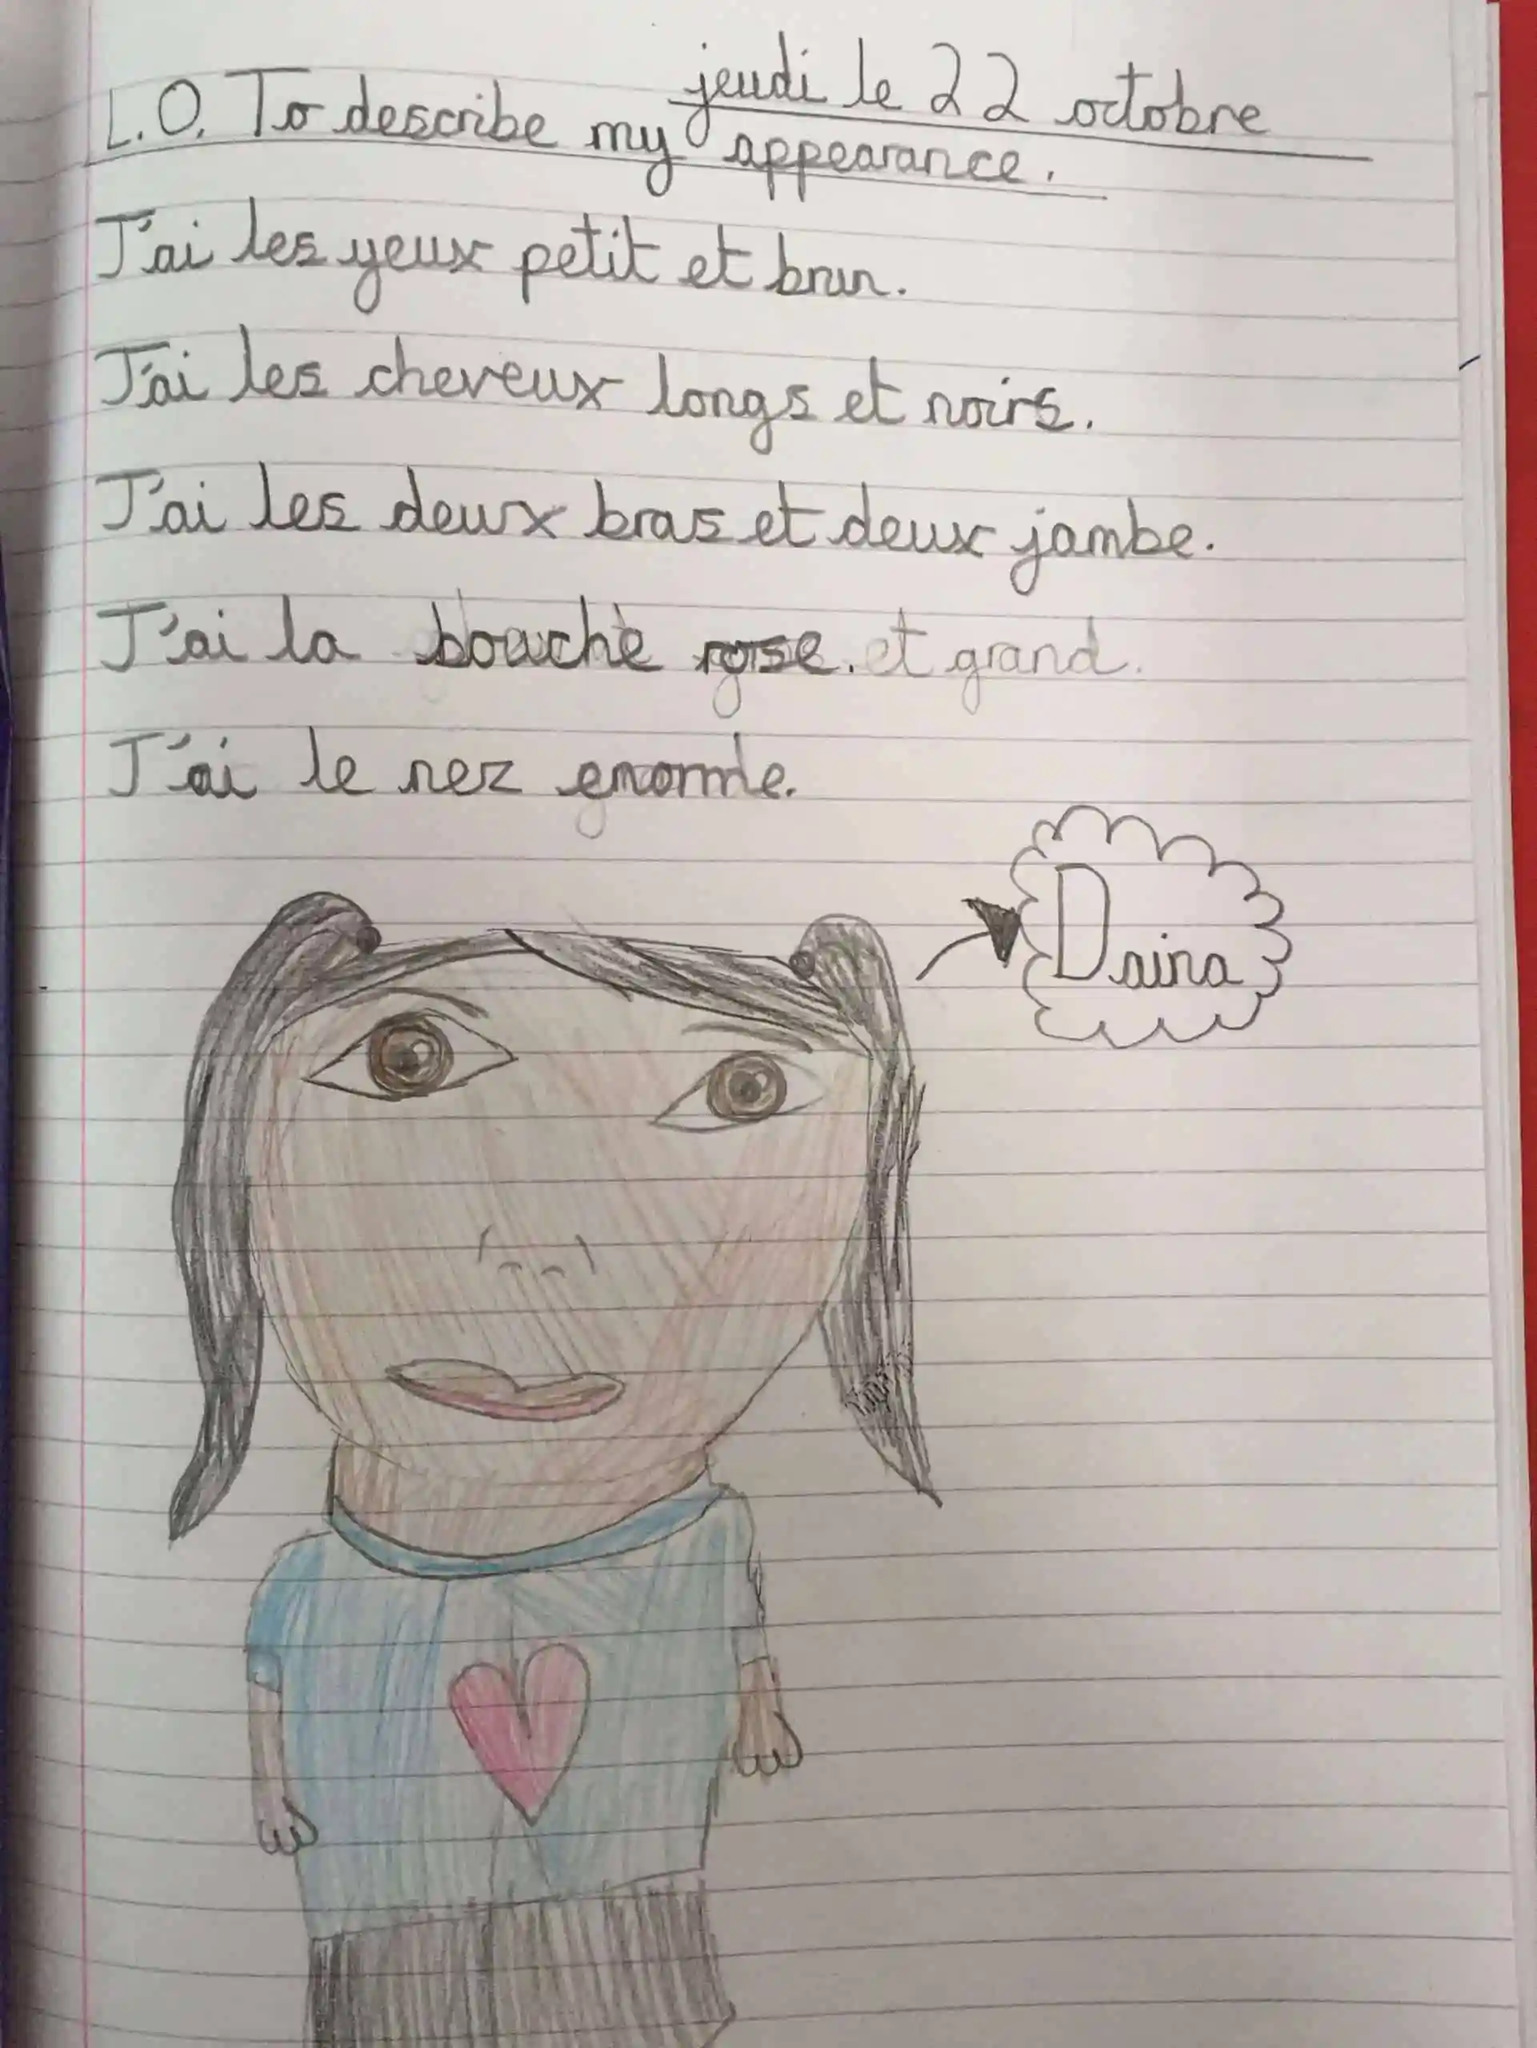 jeudi le 22 octobre
L.O. To describe my appearance.
J'ai les yeux petit et brun.
J'ai les cheveux longs et noirs.
J'ai les deux bras et deux jambe.
J'ai la bouche rose. et grand.
J'ai le nez enorme.
Daina